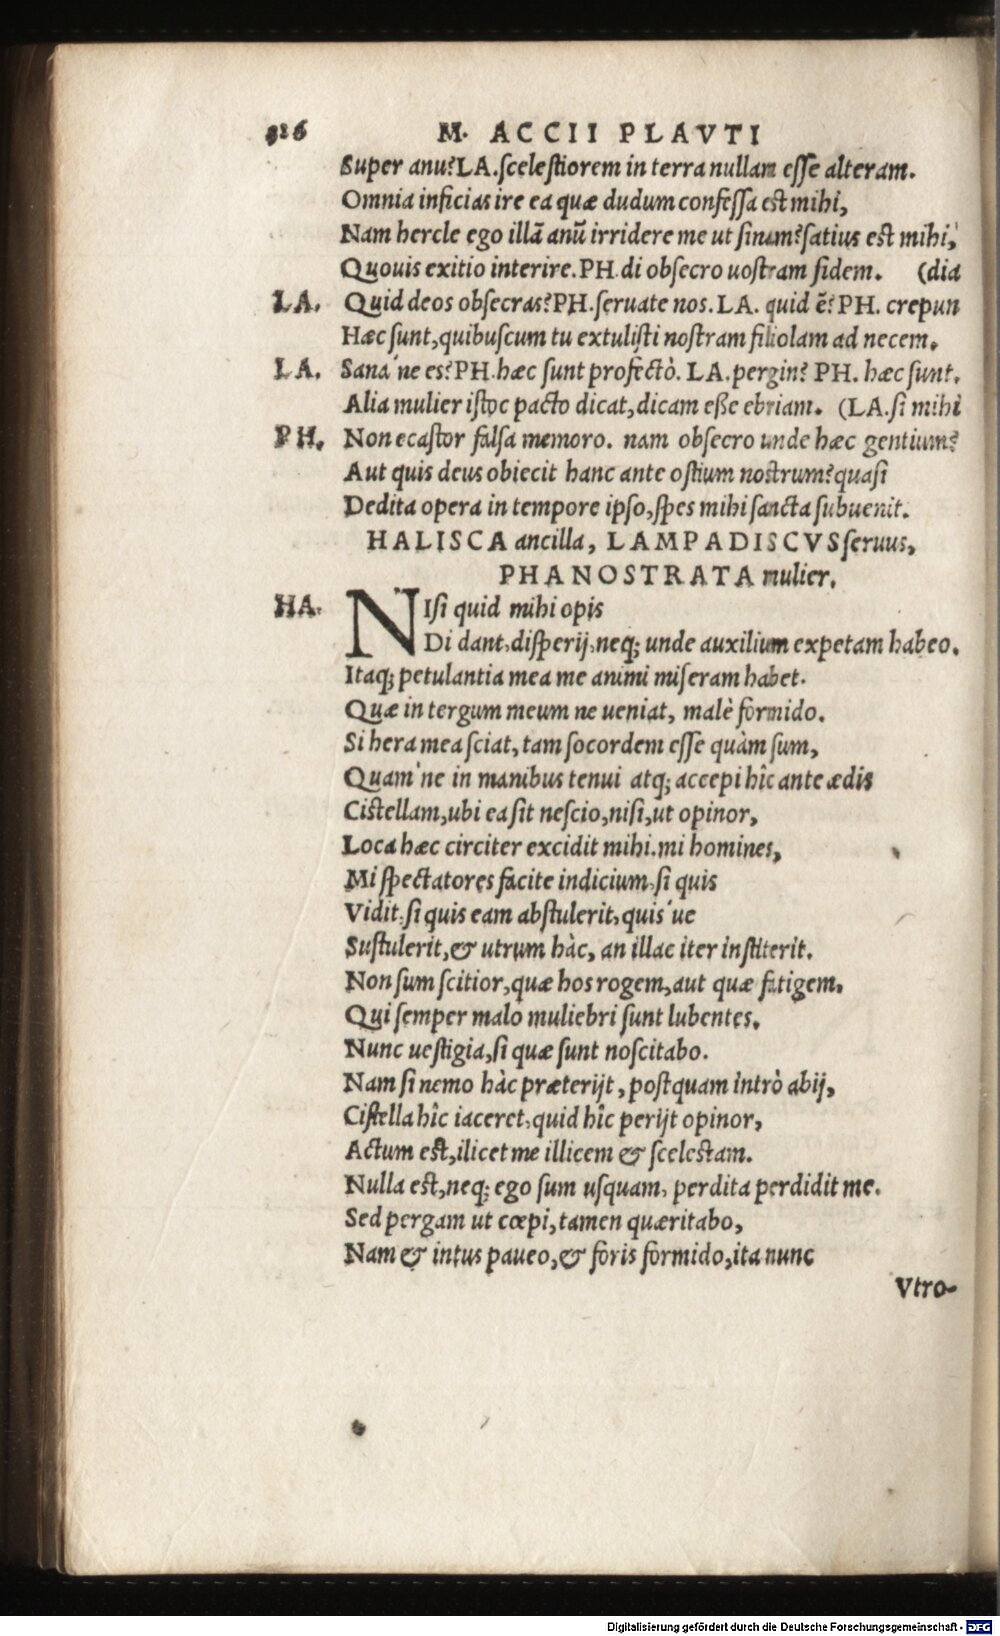 326 M. ACCII PLAVTI
Super anu? LA. ſceleſtiorem in terra nullam eſſe alteram.
Omnia inficias ire ea quæ dudum confeſſa eſt mihi,
Nam hercle ego illā anū irridere me ut ſinam? ſatius eſt mihi,
Quouis exitio interire. PH. di obſecro uoſtram fidem. (dia
LA. Quid deos obſecras? PH. ſeruate nos. LA. quid ē? PH. crepun
Hæc ſunt, quibuſcum tu extuliſti noſtram filiolam ad necem.
LA. Sana'ne es? PH. hæc ſunt profectò. LA. pergin? PH. hæc ſunt.
Alia mulier iſtoc pacto dicat, dicam eße ebriam. (LA. ſi mihi
PH. Non ecaſtor falſa memoro. nam obſecro unde hæc gentium?
Aut quis deus obiecit hanc ante oſtium noſtrum? quaſi
Dedita opera in tempore ipſo, ſpes mihi ſancta ſubuenit.
HALISCA ancilla, LAMPADISCVS ſeruus,
PHANOSTRATA mulier.
HA. NIſi quid mihi opis
Di dant, diſperij, neq; unde auxilium expetam habeo.
Itaq; petulantia mea me animi miſeram habet.
Quæ in tergum meum ne ueniat, malè formido.
Si hera mea ſciat, tam ſocordem eſſe quàm ſum,
Quam'ne in manibus tenui atq; accepi hîc ante ædis
Ciſtellam, ubi ea ſit neſcio, niſi, ut opinor,
Loca hæc circiter excidit mihi. mi homines,
Mi ſpectatores facite indicium, ſi quis
Vidit, ſi quis eam abſtulerit, quis'ue
Suſtulerit, & utrum hàc, an illac iter inſtiterit.
Non ſum ſcitior, quæ hos rogem, aut quæ fatigem.
Qui ſemper malo muliebri ſunt lubentes.
Nunc ueſtigia, ſi quæ ſunt noſcitabo.
Nam ſi nemo hàc præterijt, poſtquam intrò abij,
Ciſtella hîc iaceret, quid hîc perijt opinor,
Actum eſt, ilicet me illicem & ſceleſtam.
Nulla eſt, neq; ego ſum uſquam, perdita perdidit me.
Sed pergam ut cœpi, tamen quæritabo,
Nam & intus paueo, & foris formido, ita nunc
Vtro-
Digitalisierung gefördert durch die Deutsche Forschungsgemeinschaft - DFG